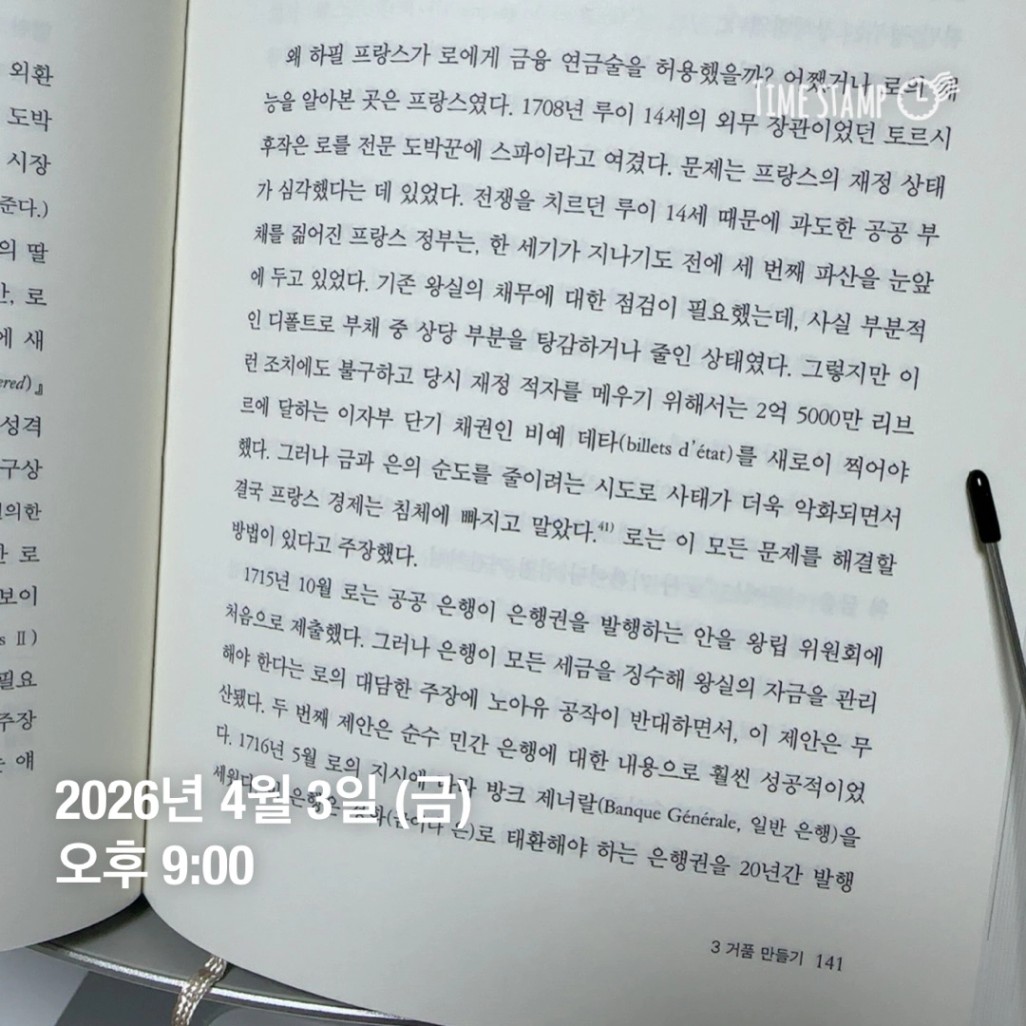 외환
도박
시장
준다.)
의 딸
, 로
에 새
ered)』
성격
구상
의한
로
보이
s II)
필요
주장
얘
왜 하필 프랑스가 로에게 금융 연금술을 허용했을까? 어쨌거나 로의
TIME STAMP
능을 알아본 곳은 프랑스였다. 1708년 루이 14세의 외무 장관이었던 토르시
후작은 로를 전문 도박꾼에 스파이라고 여겼다. 문제는 프랑스의 재정 상태
가 심각했다는 데 있었다. 전쟁을 치르던 루이 14세 때문에 과도한 공공 부
채를 짊어진 프랑스 정부는, 한 세기가 지나기도 전에 세 번째 파산을 눈앞
에 두고 있었다. 기존 왕실의 채무에 대한 점검이 필요했는데, 사실 부분적
인 디폴트로 부채 중 상당 부분을 탕감하거나 줄인 상태였다. 그렇지만 이
런 조치에도 불구하고 당시 재정 적자를 메우기 위해서는 2억 5000만 리브
르에 달하는 이자부 단기 채권인 비예 데타(billets d'état)를 새로이 찍어야
했다. 그러나 금과 은의 순도를 줄이려는 시도로 사태가 더욱 악화되면서
결국 프랑스 경제는 침체에 빠지고 말았다.41) 로는 이 모든 문제를 해결할
방법이 있다고 주장했다.
1715년 10월 로는 공공 은행이 은행권을 발행하는 안을 왕립 위원회에
처음으로 제출했다. 그러나 은행이 모든 세금을 징수해 왕실의 자금을 관리
해야 한다는 로의 대담한 주장에 노아유 공작이 반대하면서, 이 제안은 무
산됐다. 두 번째 제안은 순수 민간 은행에 대한 내용으로 훨씬 성공적이었
다. 1716년 5월 로의 지시에 따라 방크 제너랄(Banque Générale, 일반 은행)을
세웠다. 은행은 (금이나 은)로 태환해야 하는 은행권을 20년간 발행
2026년 4월 3일 (금)
오후 9:00
3 거품 만들기 141